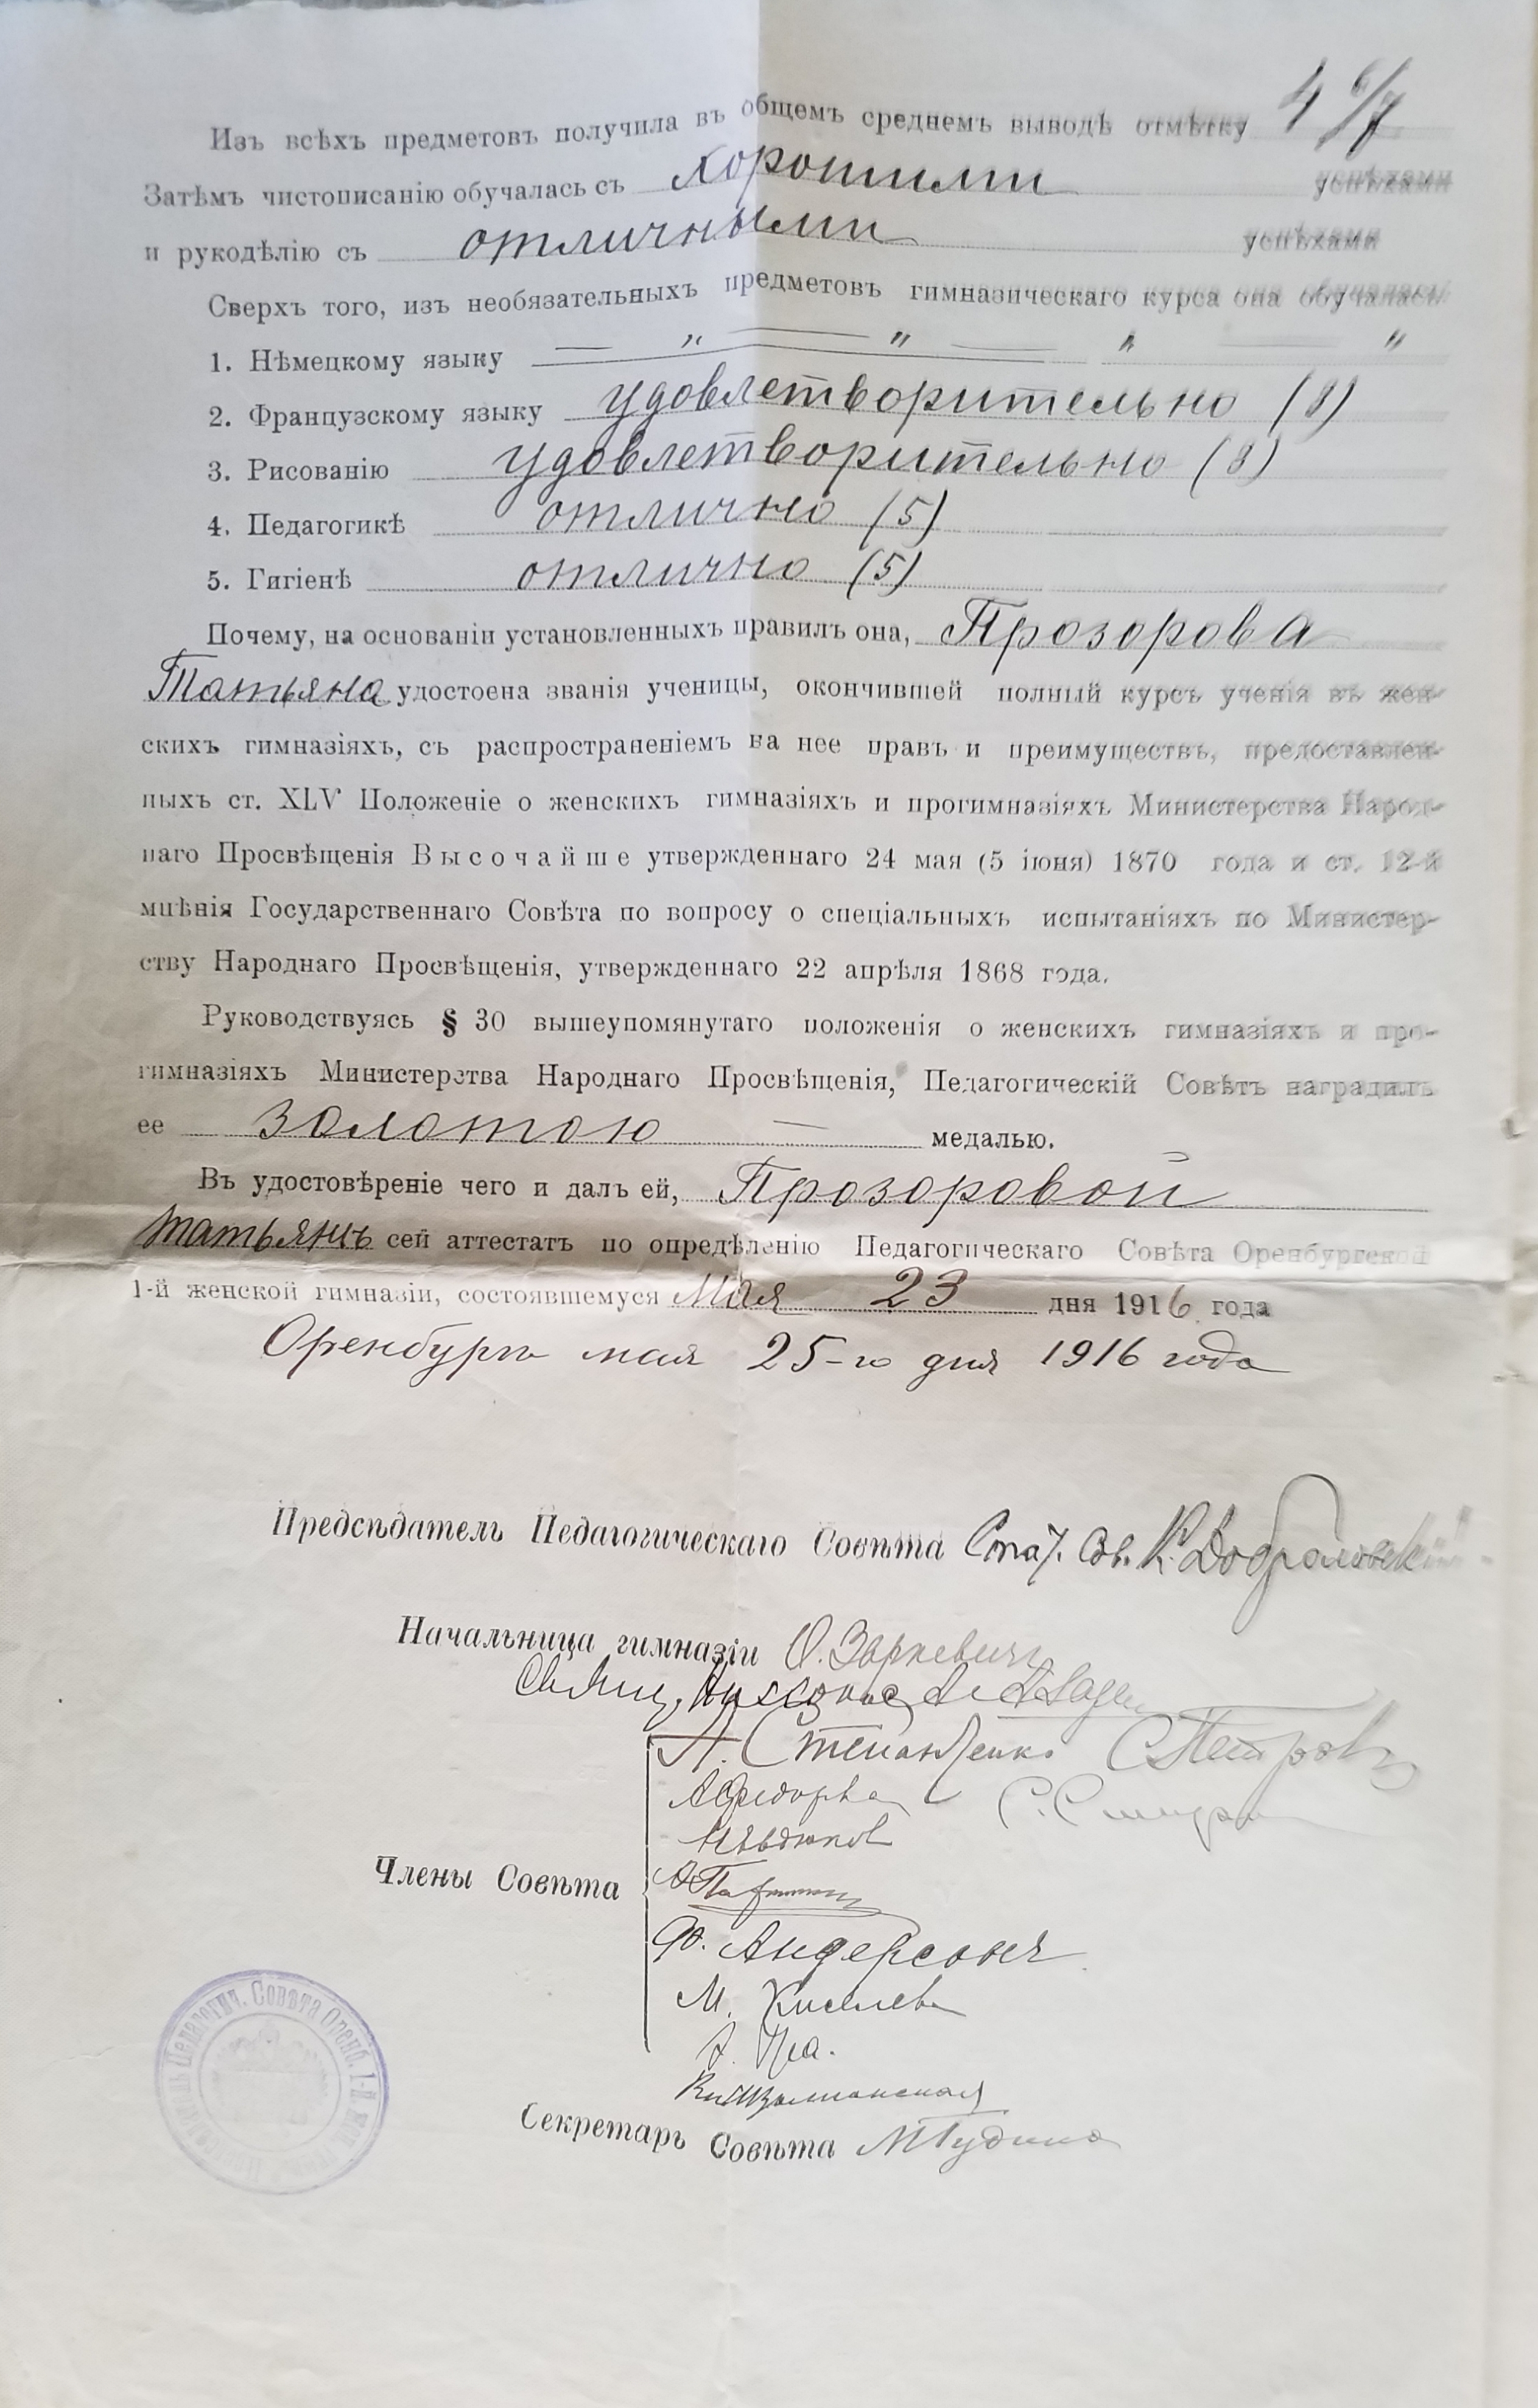 Изъ всѣхъ предметовъ получила въ общемъ среднемъ выводѣ отмѣтку 4 6/7
Затѣмъ чистописанію обучалась съ хорошими успѣхами
и рукодѣлію съ отличными успѣхами
Сверхъ того, изъ необязательныхъ предметовъ гимназическаго курса она обучалась
1. Нѣмецкому языку — „ — „ — „ — „
2. Французскому языку удовлетворительно (3)
3. Рисованію удовлетворительно (3)
4. Педагогикѣ отлично (5)
5. Гигіенѣ отлично (5)
Почему, на основаніи установленныхъ правилъ она, Прозорова
Татьяна удостоена званія ученицы, окончившей полный курсъ ученія въ жен-
скихъ гимназіяхъ, съ распространеніемъ на нее правъ и преимуществъ, предоставлен-
ныхъ ст. XLV Положеніе о женскихъ гимназіяхъ и прогимназіяхъ Министерства Народ-
наго Просвѣщенія Высочайше утвержденнаго 24 мая (5 іюня) 1870 года и ст. 12-й
мнѣнія Государственнаго Совѣта по вопросу о спеціальныхъ испытаніяхъ по Министер-
ству Народнаго Просвѣщенія, утвержденнаго 22 апрѣля 1868 года.
Руководствуясь § 30 вышеупомянутаго положенія о женскихъ гимназіяхъ и про-
гимназіяхъ Министерства Народнаго Просвѣщенія, Педагогическій Совѣтъ наградилъ
ее золотою — медалью.
Въ удостовѣреніе чего и далъ ей, Прозоровой
Татьянѣ сей аттестатъ по опредѣленію Педагогическаго Совѣта Оренбургской
1-й женской гимназіи, состоявшемуся Мая 23 дня 1916 года
Оренбургъ мая 25-го дня 1916 года
Предсѣдатель Педагогическаго Совѣта Стат. Сов. К.
Начальница гимназіи О. Заркевичъ
Свящ.
А. Степаненко С. Петровъ
А. Федорова С.
Члены Совѣта
Ф. Андерсонъ
М. Киселева
А.
Секретарь Совѣта М.
Педагогич. Совѣта Оренб. 1-й жен.